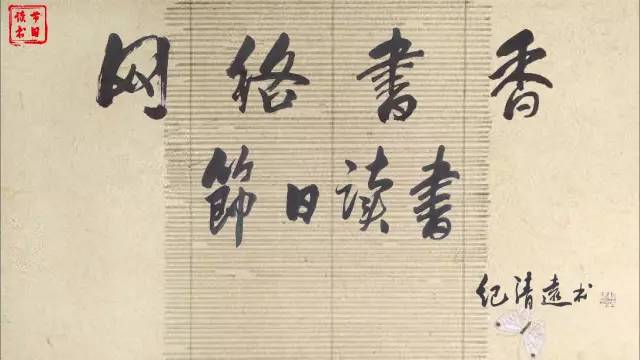 节日读书
网络書香
節日读書
纪清远书